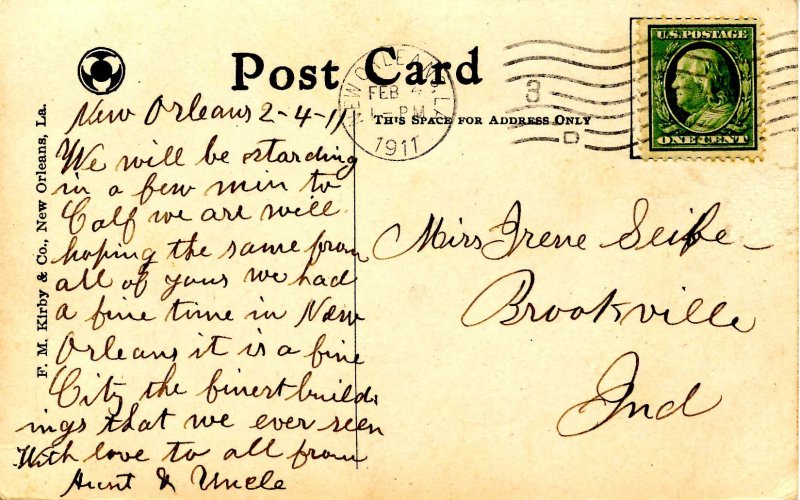 Post Card
THIS SPACE FOR ADDRESS ONLY
NEW ORLEANS, LA
FEB 4
PM
1911
3
D
U.S. POSTAGE
ONE CENT
F. M. Kirby & Co., New Orleans, La.
New Orleans 2-4-11
We will be starding
in a few min to
Calf we are well
hoping the same from
all of yous we had
a fine time in New
Orleans it is a fine
City the finest build-
ings that we ever seen
With love to all from
Aunt & Uncle
Mirs Irene Seife
Brookville
Ind